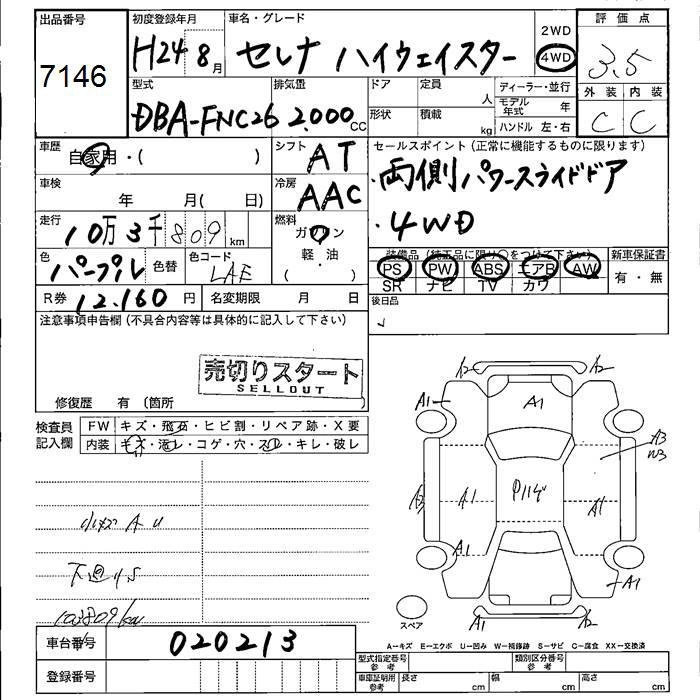 出品番号
7146
初度登録年月
H24 8月
車名・グレード
セレナ ハイウェイスター
2WD
4WD
評価点
3.5
外装 内装
C C
型式
DBA-FNC26
排気量
2.000 cc
ドア
定員 人
形状
積載 kg
ディーラー・並行
モデル年式 年
ハンドル 左・右
車歴
自家用・( )
シフト
AT
セールスポイント(正常に機能するものに限ります)
・両側パワースライドドア
・4WD
車検
年 月( 日)
冷房
AAC
走行
10万3千809km
燃料
ガソリン
軽・油
( )
色
パープル
色替
色コード
LAE
装備品(純正品に限り○をつけて下さい)
PS PW ABS エアB AW
SR ナビ TV カワ
新車保証書
有・無
R券 12.160円
名変期限 月 日
後日品
注意事項申告欄(不具合内容等は具体的に記入して下さい)
売切りスタート
SELLOUT
修復歴 有(箇所
検査員記入欄
FW キズ・飛石・ヒビ割・リペア跡・X要
内装 キズ・汚レ・コゲ・穴・スレ・キレ・破レ
小キズ A U
下廻りS
103809km
A2 A2
A1 A1
A3
W3
A3 A1 A1
A1
A1
A1 A2
スペア
A=キズ E=エクボ U=凹み W=補修跡 S=サビ C=腐食 XX=交換済
車台番号 020213
登録番号
型式指定番号 参考
類別区分番号 参考
車庫証明用 参考
長さ cm 幅 cm 高さ cm